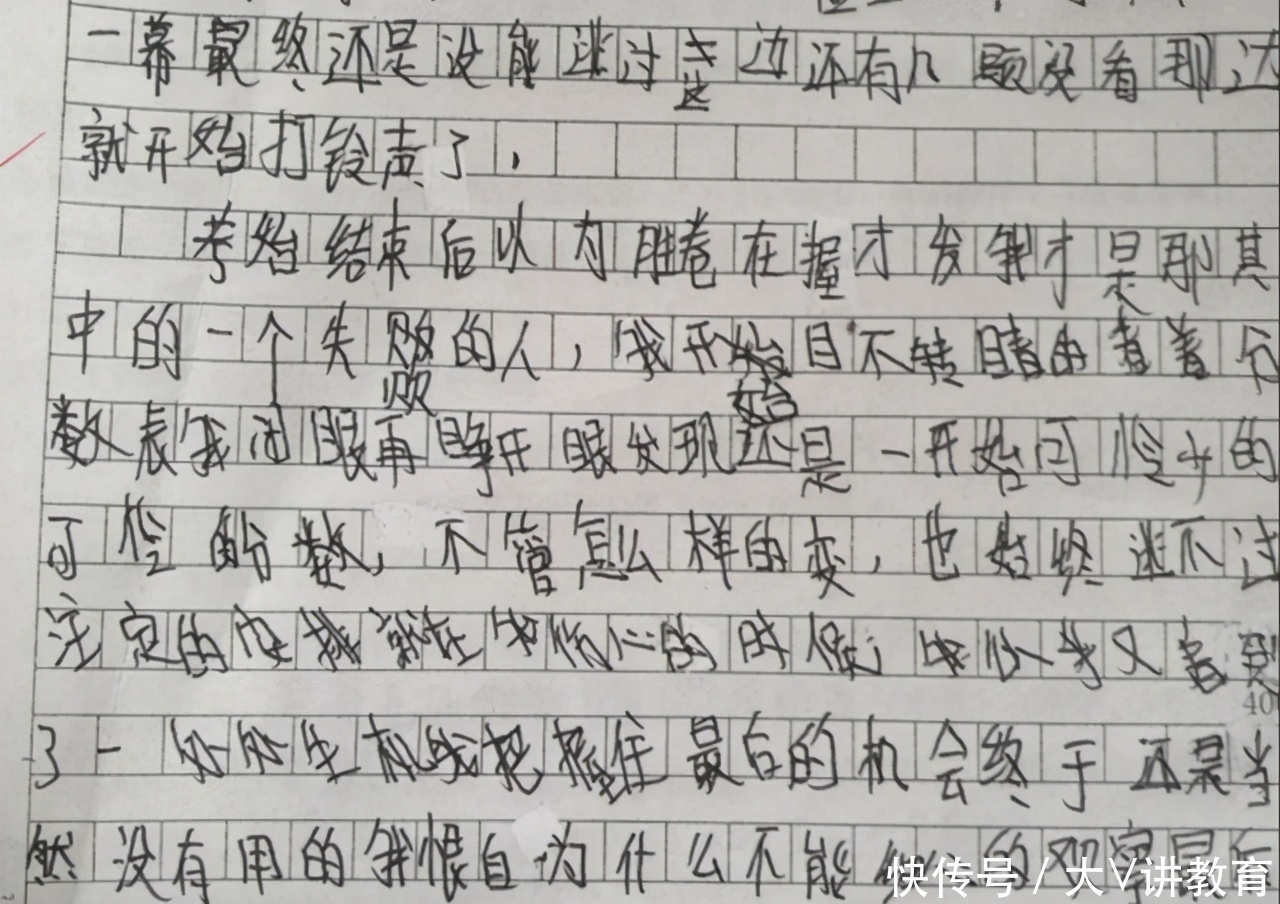 一幕最终还是没能逃过这边还有几题没看那边
就开始打铃声了，
考始结束后以为胜卷在握才发我才是那其
中的一个失败的人，我开始目不转睛的看着分
数表我闭眼再睁开眼发现还是一开始可怜的
可怜的分数，不管怎么样的变，也始终逃不过
注定的安排就在我伤心的时候，我又看到
40
了一处处生机我把握住最后的机会终于还是当
然没有用的我恨自为什么不能的双字最后
快传号/大V讲教育